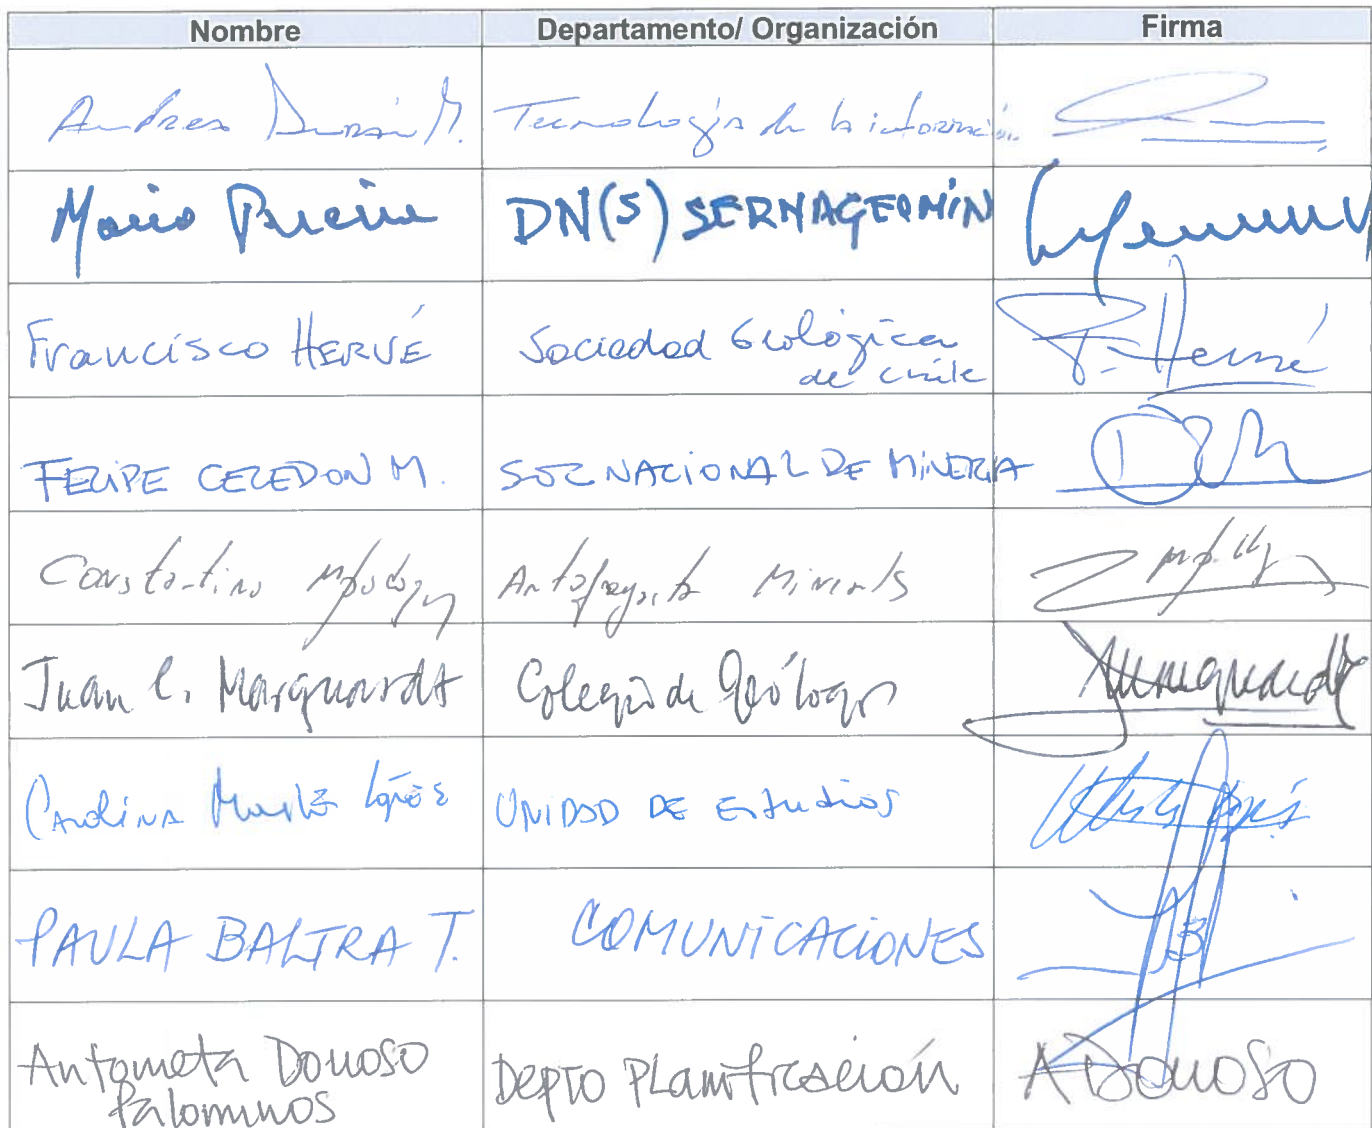 Nombre Departamento/ Organización Firma
Andrea Durán M. Tecnología de la información
Mario Pereira DN(S) SERNAGEOMIN
Francisco HERVÉ Sociedad Geológica de Chile F. Hervé
FELIPE CELEDON M. SOC NACIONAL DE MINERIA
Constantino Mpodozis Antofagasta Minerals
Juan C. Marquardt Colegio de Geólogos JMarquardt
CAROLINA López UNIDAD DE EStudios
PAULA BALTRA T. COMUNICACIONES
Antonieta Donoso Palominos DEPTO PLanificación ADonoso